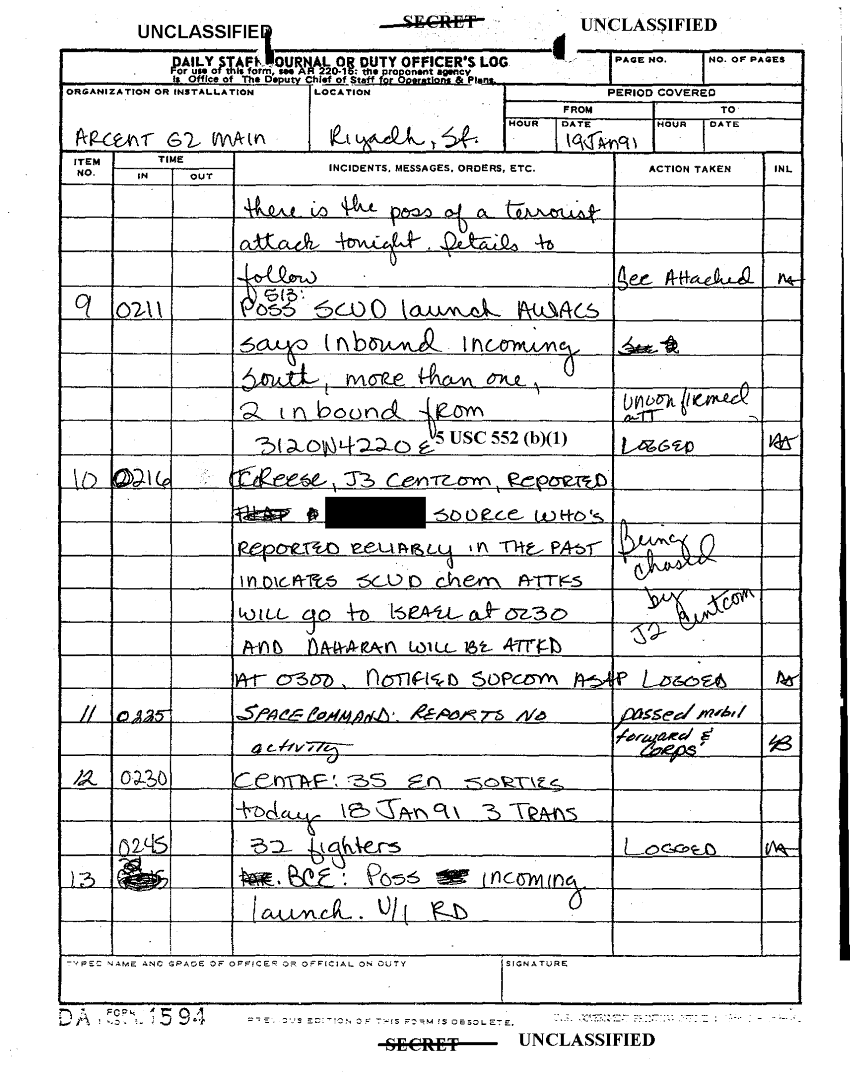 UNCLASSIFIED
SECRET
UNCLASSIFIED
DAILY STAFF JOURNAL OR DUTY OFFICER'S LOG
For use of this form, see AR 220-15: the proponent agency
is Office of The Deputy Chief of Staff for Operations & Plans.
PAGE NO.
NO. OF PAGES
ORGANIZATION OR INSTALLATION
LOCATION
PERIOD COVERED
FROM
TO
HOUR
DATE
HOUR
DATE
ARCENT G2 MAIN
Riyadh, SA.
19JAN91
ITEM NO.
TIME
IN
OUT
INCIDENTS, MESSAGES, ORDERS, ETC.
ACTION TAKEN
INL
there is the poss of a terrorist
attack tonight. Details to
follow See Attached
513:
9 0211 Poss SCUD launch AWACS
says inbound incoming
South, more than one,
2 inbound from unconfirmed
3120N4220E 5 USC 552 (b)(1) LOGGED
10 0216 Reese, J3 CENTCOM, REPORTED
THAT A SOURCE WHO'S
REPORTED RELIABLY IN THE PAST Being
INDICATES SCUD chem ATTKS chased
WILL go to ISRAEL at 0230 by
AND DAHARAN WILL BE ATTKD J2 Centcom
AT 0300. NOTIFIED SUPCOM ASAP LOGGED
11 0225 SPACE COMMAND: REPORTS NO passed mobil
activity forward & CORPS
12 0230 CENTAF: 35 EN SORTIES
today 18 JAN 91 3 TRANS
0245 32 fighters LOGGED
13 BCE: Poss incoming
launch. U/I RD
TYPED NAME AND GRADE OF OFFICER OR OFFICIAL ON DUTY
SIGNATURE
DA FORM 1594
PREVIOUS EDITION OF THIS FORM IS OBSOLETE.
SECRET
UNCLASSIFIED